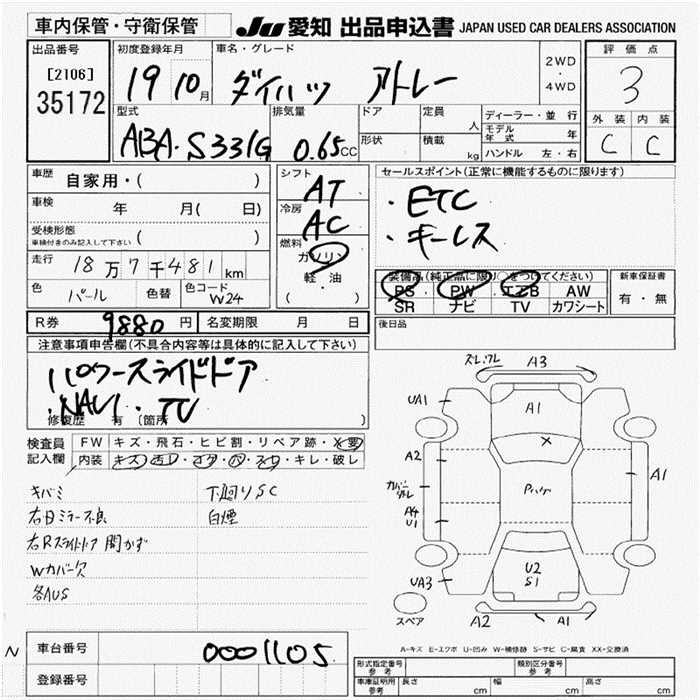 車内保管・守衛保管
JU 愛知 出品申込書 JAPAN USED CAR DEALERS ASSOCIATION
出品番号
[2106]
35172
初度登録年月
19 10月
車名・グレード
ダイハツ アトレー
2WD
・
4WD
評価点
3
外装 内装
C C
型式
ABA-S331G
排気量
0.65CC
ドア
形状
定員
人
積載
kg
ディーラー・並行
モデル年式 年
ハンドル 左・右
車歴 自家用・( )
車検 年 月( 日)
受検形態
車検付きのみ記入して下さい ( )
走行 18万7千481km
色 パール 色替 色コード W24
シフト
AT
冷房
AC
燃料
ガソリン
軽・油
( )
セールスポイント(正常に機能するものに限ります)
・ETC
・キーレス
装備品(純正品に限り○をつけてください)
PS・PW・エアB AW
SR ナビ TV カワシート
新車保証書
有・無
後日品
R券 9880円 名変期限 月 日
注意事項申告欄(不具合内容等は具体的に記入して下さい)
パワースライドドア
・NAVI・TV
修復歴 有 〔箇所 〕
検査員
記入欄
FW キズ・飛石・ヒビ割・リペア跡・X要
内装 キズ・キレ・破レ
キバミ
右Rスライドドア開かず
Wカバー欠
各AUS
下廻りSC
白煙
A3
UA1
A1
A2
カバーズレ
A4
U1
A1
UA3
U2
S1
スペア
A2
A1
A-キズ E-エクボ U-凹み W-補修跡 S-サビ C-腐食 XX-交換済
N
車台番号 0001105
登録番号
形式指定番号
参考
類別区分番号
参考
車庫証明用
参考
長さ cm 幅 cm 高さ cm